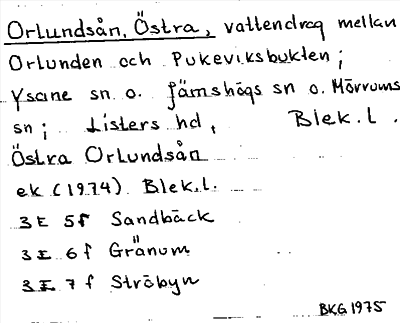 Orlundsån, Östra, vattendrag mellan
Orlunden och Pukeviksbukten;
Ysane sn. o. Jämshögs sn o. Mörrums
sn; Listers hd, Blek.l.
Östra Orlundsån
ek (1974) Blek.l.
3E 5f Sandbäck
3E 6f Gränum
3E 7f Ströbyn
BKG 1975